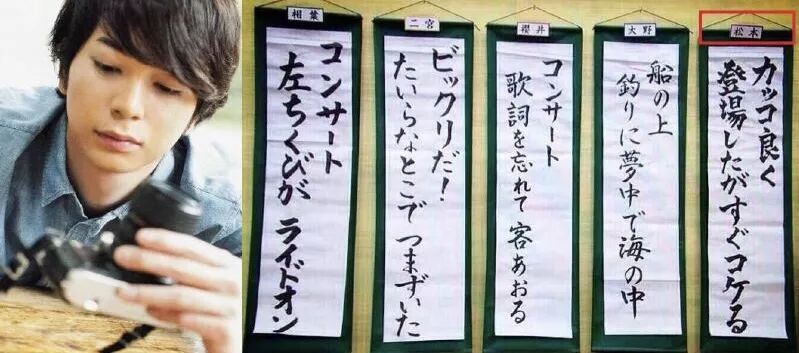 松本
カッコ良く
登場したがすぐコケる
大野
船の上
釣りに夢中で海の中
櫻井
コンサート
歌詞を忘れて客あおる
二宮
ビックリだ!
たいらなとこで つまずいた
相葉
コンサート
左ちくびが ライドオン